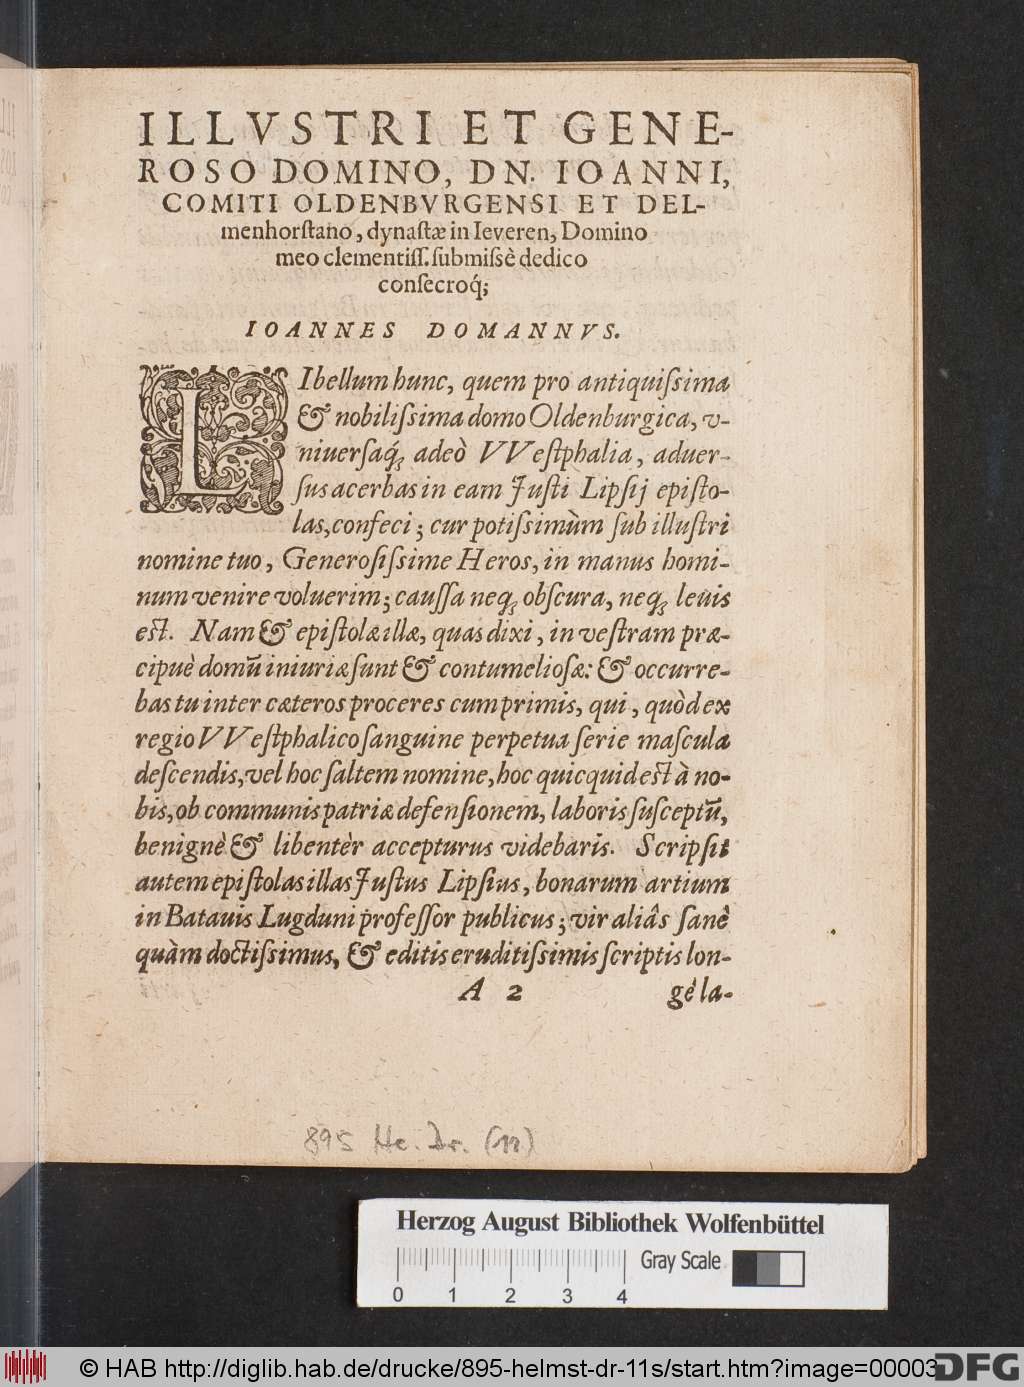 ILLVSTRI ET GENE-
ROSO DOMINO, DN. IOANNI,
COMITI OLDENBVRGENSI ET DEL-
menhorſtano, dynaſtæ in Ieveren, Domino
meo clementiſſ. ſubmiſsè dedico
conſecroq́;
IOANNES DOMANNVS.
LIbellum hunc, quem pro antiquiſsima
& nobiliſsima domo Oldenburgica, v-
niuerſaq́; adeò VVeſtphalia, aduer-
ſus acerbas in eam Juſti Lipſij epiſto-
las, confeci; cur potiſsimùm ſub illuſtri
nomine tuo, Generoſiſsime Heros, in manus homi-
num venire voluerim; cauſſa neq; obſcura, neq; leuis
eſt. Nam & epiſtolæ illæ, quas dixi, in veſtram præ-
cipuè domũ iniuriæ ſunt & contumelioſæ: & occurre-
bas tu inter cæteros proceres cum primis, qui, quòd ex
regio VVeſtphalico ſanguine perpetua ſerie maſcula
deſcendis, vel hoc ſaltem nomine, hoc quicquid eſt à no-
bis, ob communis patriæ defenſionem, laboris ſuſceptũ,
benignè & libentèr accepturus videbaris. Scripſit
autem epiſtolas illas Juſtus Lipſius, bonarum artium
in Batauis Lugduni profeſſor publicus; vir aliâs ſanè
quàm doctiſsimus, & editis eruditiſsimis ſcriptis lon-
A 2 gè la-
895 He. Dr. (11)
Herzog August Bibliothek Wolfenbüttel
Gray Scale
0 1 2 3 4
© HAB http://diglib.hab.de/drucke/895-helmst-dr-11s/start.htm?image=00003
DFG